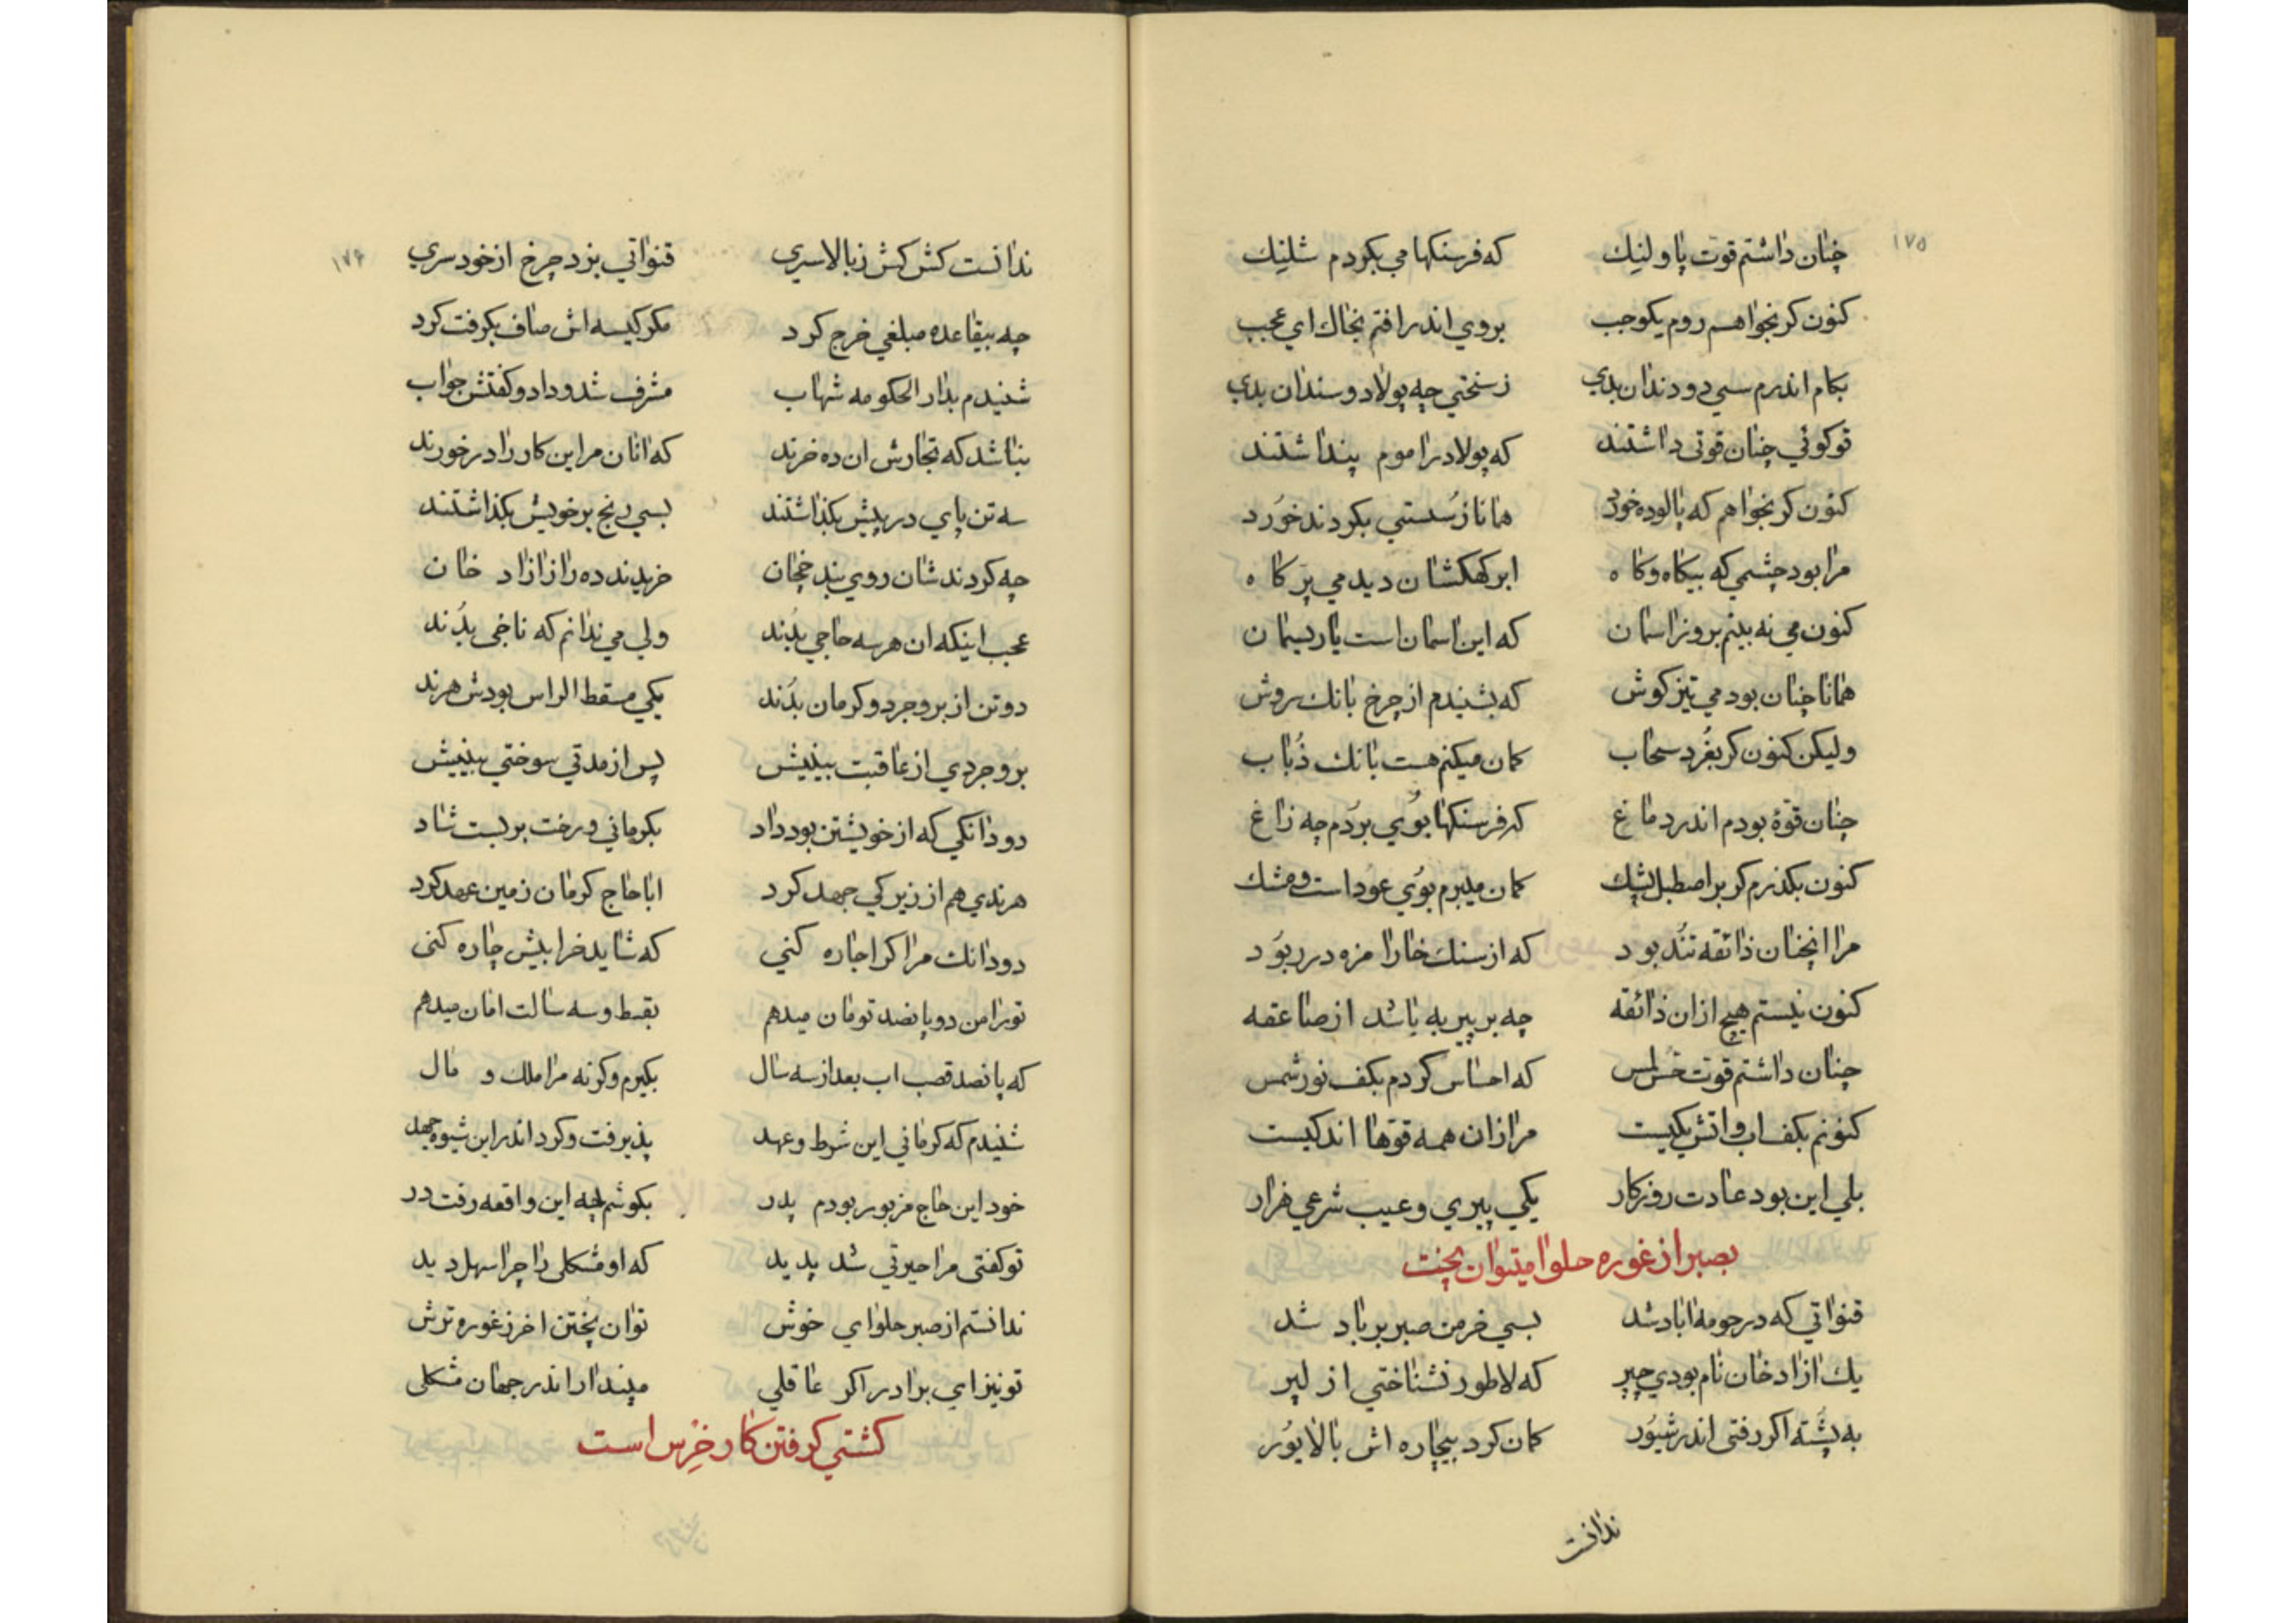 ۱۷۵
چنان داشتم قوت پا و لنیك که فرسنکها می بکردم شلنیك
کنون کر بخواهم روم یکوجب بروی اندر افتم بخاك ای عجب
بکام اندرم سی دو دندان بدی ز سختی چه پولاد و سندان بدی
تو کوئی چنان قوتی داشتند که پولاد را موم پنداشتند
کنون کر بخواهم که پالوده خورد همانا ز سستی بکردند خورد
مرا بود چشمی که بیکاه و کاه ابر کهکشان دیدمی پر کاه
کنون می نه بینم بروز اسمان که این اسمان است یا ریسمان
همانا چنان بودمی تیز کوش که بشنیدم از چرخ بانك سروش
ولیکن کنون کر بغرد سحاب کمان میکنم هست بانك ذباب
چنان قوة بودم اندر دماغ که فرسنکها بوی بردم چه زاغ
کنون بکذرم کر بر اصطبل پشك کمان میبرم بوی عود است و مشك
مرا انچنان ذائقه تند بود که از سنك خارا مزه در ربود
کنون نیستم هیچ ازان ذائقه چه بر پیر به باشد از صاعقه
چنان داشتم قوت حس لمس که احساس کردم بکف نور شمس
کنونم بکف اب و اتش یکیست مرا زان همه قوها اندکیست
بلی این بود عادت روزکار یکی پیری و عیب شرعی هزار
بصبر از غوره حلوا میتوان پخت
قنواتی که در حومه اباد شد بسی خرمن صبر بر باد شد
یك ازاد خان نام بودی چپر که لاطور نشناختی از لپر
به پشته اکر رفتی اندر شیور کمان کرد بیچاره اش بالا یور
ندانست
۱۷۶
ندانست کش کش ز بالا سری قنواتی بزد چرخ از خود سری
چه بیقاعده مبلغی خرج کرد مکر کیسه اش صاف بکرفت کرد
شنیدم بدار الحکومه شهاب مشرف شد و داد و کفتش جواب
بناشد که تجارش ان ده خرند که انان مر این کار را در خورند
سه تن پای در پیش بکذاشتند بسی رنج بر خویش بکذاشتند
چه کردند شان روی بند خجان خریدند ده را ز ازاد خان
عجب اینکه ان هر سه حاجی بدند ولی می ندانم که ناخی بدند
دو تن از بروجرد و کرمان بدند یکی مسقط الراس بودش هرند
بروجردی از عاقبت بینیش پس از مدتی سوختی بینیش
دو دانکی که از خویشتن بود داد بکرمانی و رخت بر بست شاد
هرندی هم از زیرکی جهد کرد ابا حاج کرمان زمین عهد کرد
دو دانك مرا کر اجاره کنی که شاید خرابیش چاره کنی
تو را من دو پانصد تومان میدهم بقسط و سه سالت امان میدهم
که پانصد قصب اب بعد از سه سال بکیرم وکرنه مرا ملك و مال
شنیدم که کرمانی این شرط و عهد پذیرفت و کرد اندر این شیوه جهد
خود این حاج مزبور بودم پدر بکوشم چه این واقعه رفت در
تو کفتی مرا حیرتی شد پدید که او مشکلی را چرا سهل دید
ندانستم از صبر حلوای خوش توان پختن اخر ز غوره ترش
تو نیز ای برادر اکر عاقلی مپندار اندر جهان مشکلی
کشتی کرفتن کار خرس است